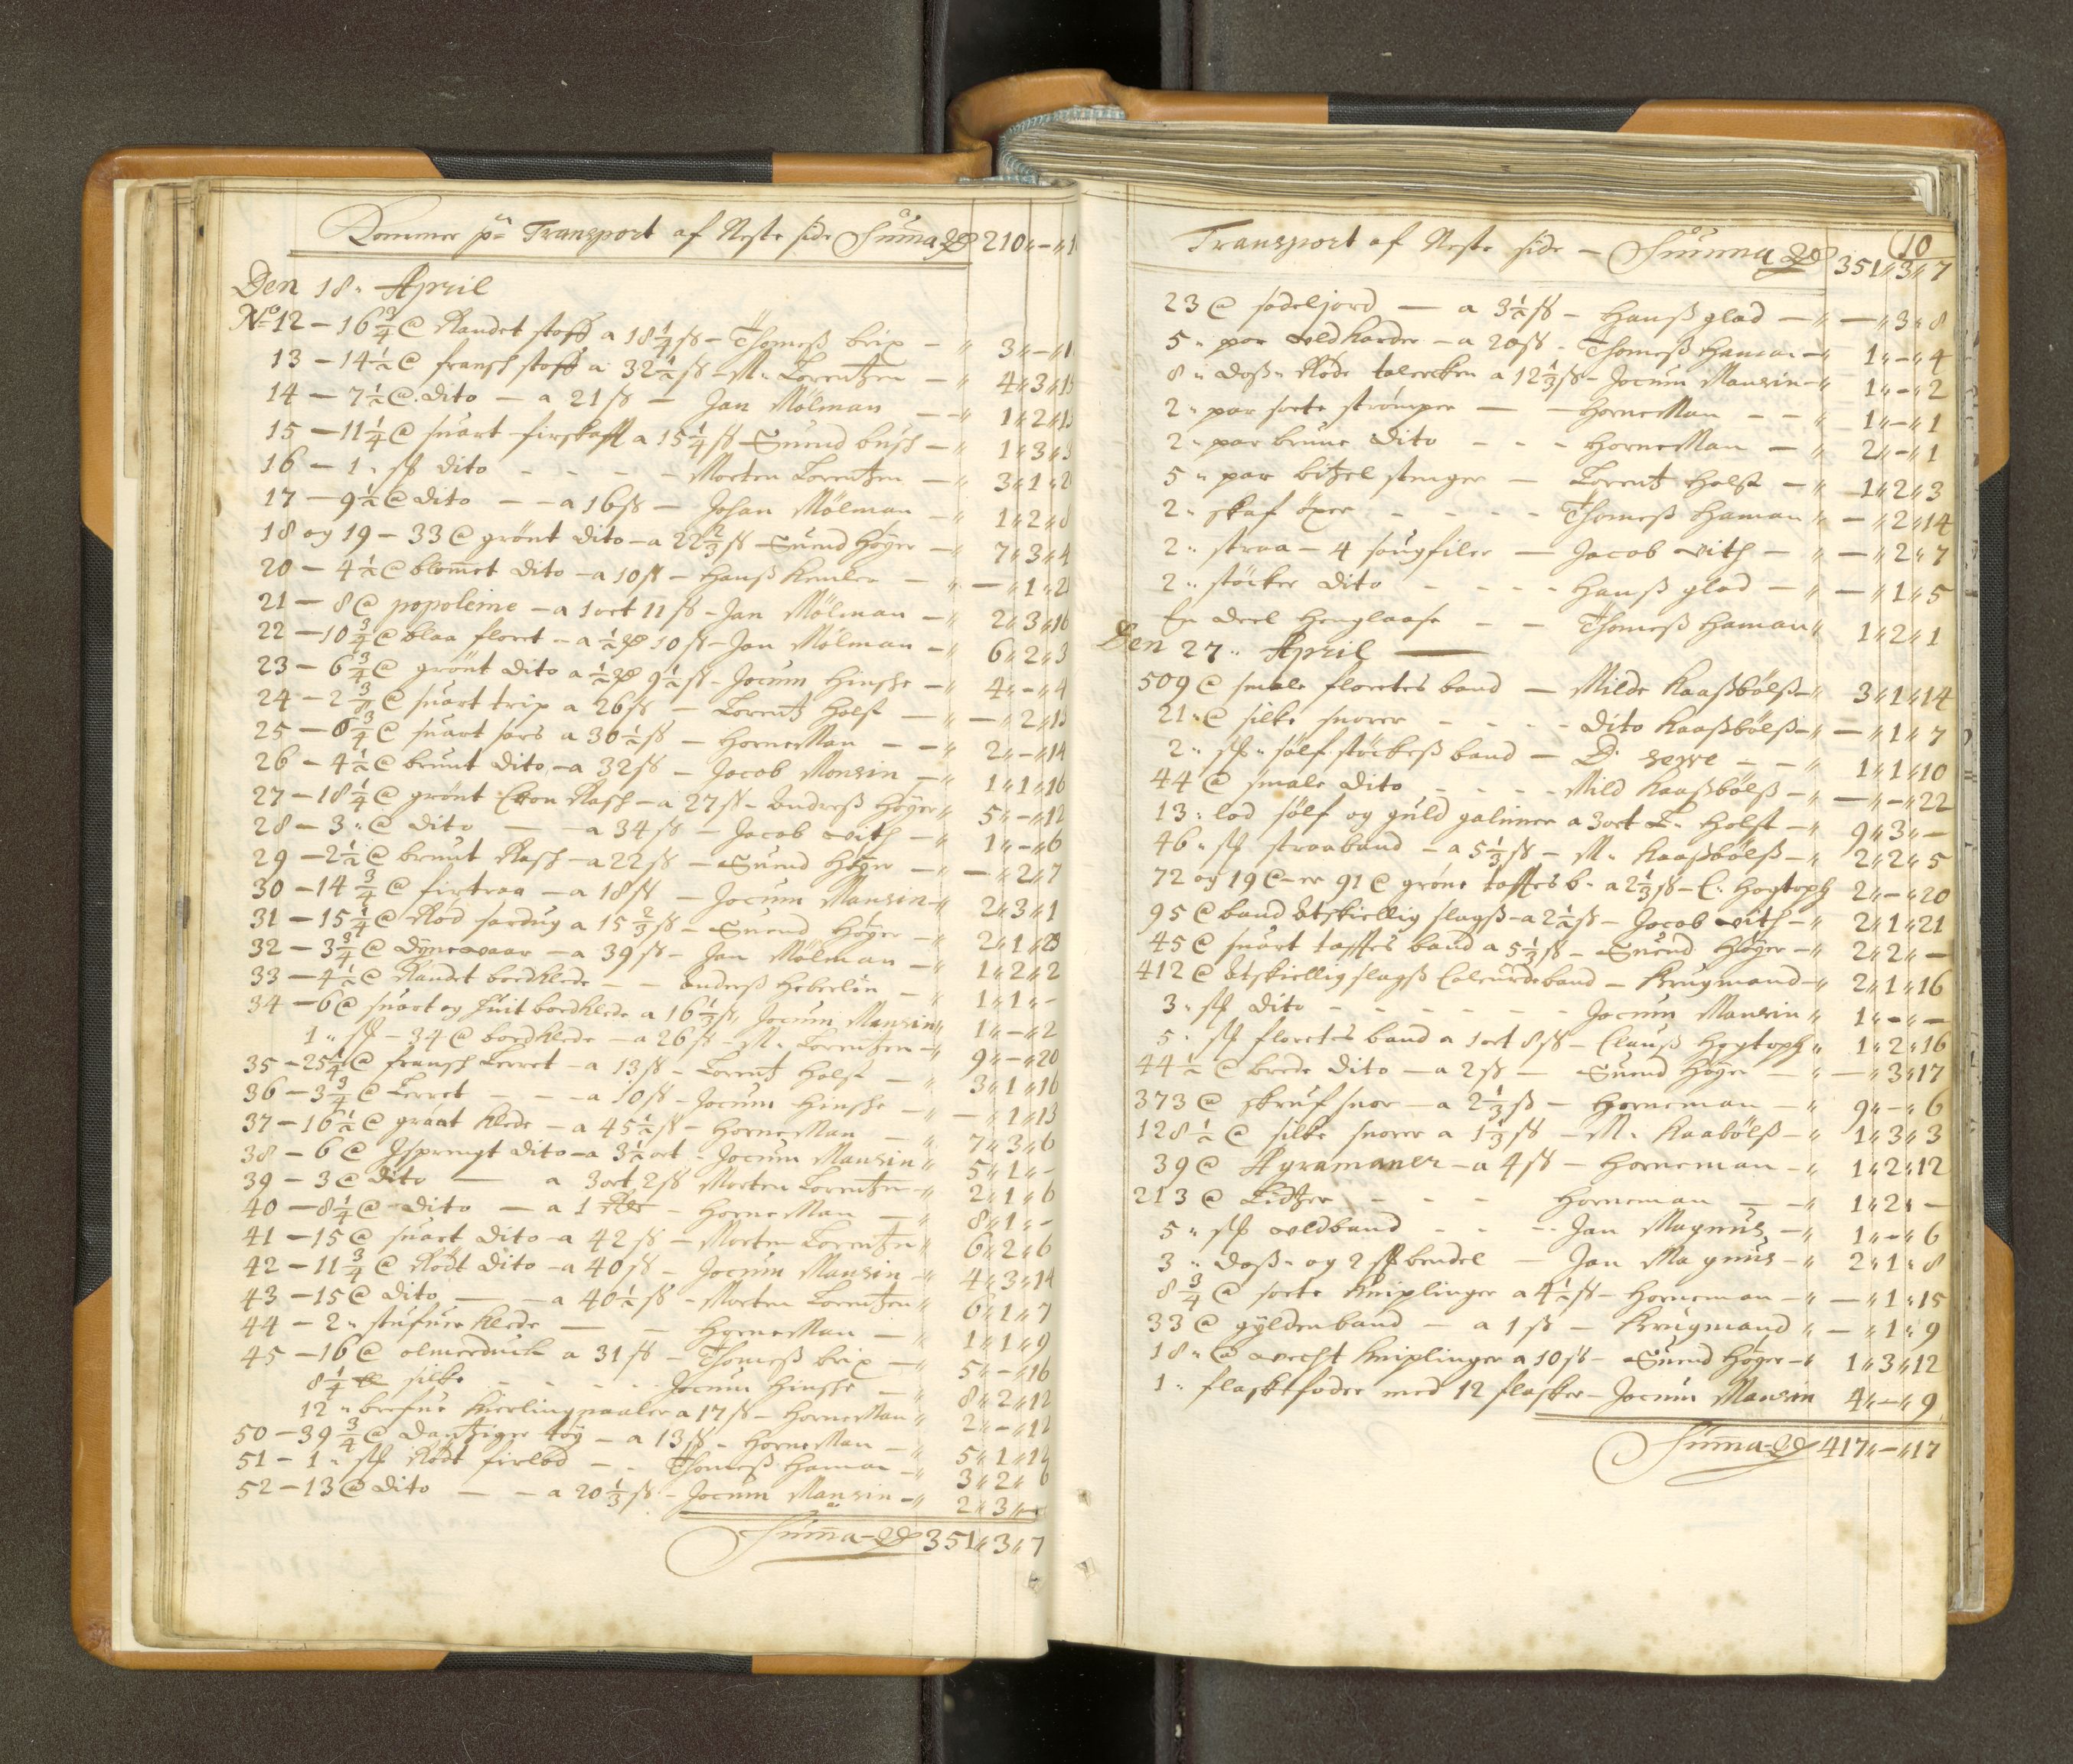 Kommer på Transport af Neste side Summa Rdr 210 „ - „ 1
Den 18. April
No 12 - 16 3/4 @ Randet stoff a 18 1/4 ſß - Thomeß brix - „ 3 „ - „ 1
13 - 14 1/2 @ fransh stoff a 32 1/2 ſß - M. Lorentzen - „ 4 „ 3 „
14 - 7 1/2 @ dito - a 21 ſß - Jan Mölman - - „ 1 „ 2 „
15 - 11 1/4 @ suart firskafft a 15 1/4 ſß Suend bush - „ 1 „ 3 „
16 - 1 „ st dito - - - - Morten Lorentzen - „ 3 „ 1 „ 2
17 - 9 1/2 @ dito - - a 16 ſß - Johan Mölman - „ 1 „ 2 „ 8
18 og 19 - 33 @ grönt dito - a 22 2/3 ſß - Suend Höyer - „ 7 „ 3 „ 4
20 - 4 1/2 @ blomet dito - a 10 ſß - Hanß Kemler - „ - „ 1 „ 2
21 - 8 @ popoleine - a 1 ort 11 ſß - Jan Mölman - „ 2 „ 3 „ 16
22 - 10 3/4 @ blaa floret - a 1/2 Rdr 10 ſß - Jan Mölman - „ 6 „ 2 „ 3
23 - 6 3/4 @ grönt dito a 1/2 Rdr 9 1/2 ſß - Jocum Hinshe - „ 4 „ - „ 4
24 - 2 3/8 @ suart trip a 26 ſß - Lorentz Holst - „ - „ 2 „
25 - 6 3/4 @ suart sars a 30 1/2 ſß - Horneman - - „ 2 „ - „ 14
26 - 4 1/2 @ brunt dito - a 32 ſß - Jacob Monsin - „ 1 „ 1 „ 16
27 - 18 1/4 @ grönt Kron Rash - a 27 ſß - Andreß Höyer „ 5 „ - „ 12
28 - 3 „ @ dito - - a 34 ſß - Jacob with - „ 1 „ - „ 6
29 - 2 1/2 @ brunt Rash - a 22 ſß - Suend Höyer - „ - „ 2 „ 7
30 - 14 3/4 @ firtraa - a 18 ſß - Jocum Mansin - „ 2 „ 3 „ 1
31 - 15 1/4 @ Röd sardug a 15 2/3 ſß - Suend Höyer - „ 2 „ 1 „ 23
32 - 3 3/4 @ dynewaar - a 39 ſß - Jan Mölman - „ 1 „ 2 „ 2
33 - 4 1/2 @ Randet bordklede - - Anderß Heberlin - „ 1 „ 1 „ -
34 - 6 @ suart og huit bordklede a 16 1/3 ſß Jocum Mansin „ 1 „ - „ 2
1 „ st - 34 @ bordklede - a 26 ſß - M. Lorentzen - „ 9 „ - „ 20
35 - 25 1/4 @ fransh Lerret - a 13 ſß - Lorentz Holst - „ 3 „ 1 „ 16
36 - 3 3/4 @ Lerret - - - a 10 ſß - Jocum Hinshe - „ - „ 1 „ 13
37 - 16 1/2 @ graat Klede - a 45 1/2 ſß - Horneman - „ 7 „ 3 „ 6
38 - 6 @ Isprengt dito - a 3 1/2 ort - Jocum Mansin „ 5 „ 1 „ -
39 - 3 @ dito - a 3 ort 2 ſß Morten Lorentzen - „ 2 „ 1 „ 6
40 - 8 1/4 @ dito - a 1 Rdr - Horneman - „ 8 „ 1 „ -
41 - 15 @ suart dito - a 42 ſß - Morten Lorentzen „ 6 „ 2 „ 6
42 - 11 3/4 @ Rödt dito - a 40 ſß - Jocum Mansin - „ 4 „ 3 „ 14
43 - 15 @ dito - - a 40 1/2 ſß - Morten Lorentzen „ 6 „ 1 „ 7
44 - 2 „ stufuer Klede - - Horneman - „ 1 „ 1 „ 9
45 - 16 @ olmerduch a 31 ſß - Thomeß brix - „ 5 „ - „ 16
8 1/4 silke - - - - Jocum Hinshe - „ 8 „ 2 „ 12
12 „ brefue Kierlingnaaler a 17 ſß - Horneman „ 2 „ - „ 12
50 - 39 3/4 @ dantziger töy - a 13 ſß - Horneman - „ 5 „ 1 „
51 - 1 „ st Rödt firlöd - - Thomeß Haman - „ 3 „ 2 „ 6
52 - 13 @ dito - - a 20 1/3 ſß - Jocum Mansin - „ 2 „ 3 „ -
Summa - Rdr 351 „ 3 „ 7
10
Transport af Neste side - Summa Rdr 351 „ 3 „ 7
23 @ sadeljord - a 3 1/2 ſß - Hanß glad - „ - „ 3 „ 8
5 „ par uldkarder - a 20 ſß - Thomeß Haman - „ 1 „ - „ 4
8 „ doß „ Röde talercken a 12 1/3 ſß - Jocum Mansin - „ 1 „ - „ 2
2 „ par sorte strömper - - Horneman - - „ 1 „ - „ 1
2 „ par brune dito - - - Horneman - „ 2 „ - „ 1
5 „ par bitzel stenger - Lorentz Holst - „ 1 „ 2 „ 3
2 „ skaf öxer - - - - Thomeß Haman „ - „ 2 „ 14
2 „ straa - 4 saugfiler - Jacob with - „ - „ 2 „ 7
2 „ stöcker dito - - - - Hanß glad - „ - „ 1 „ 5
En deel Henglaase - - Thomeß Haman „ 1 „ 2 „ 1
Den 27 „ April -
509 @ smale floretes band - Milde Kaaßbölß - „ 3 „ 1 „ 14
21 „ @ silke snorer - - - - dito Kaaßbölß - „ - „ 1 „ 7
2 „ st „ sölf stöckeß band - D. - - „ 1 „ 1 „ 10
44 @ smale dito - - - - Mild Kaaßbölß - „ - „ - „ 22
13 „ lod sölf og guld galuner a 3 ort L. Holst - „ 9 „ 3 „ -
46 „ st straaband - a 5 1/3 ſß - M. Kaaßbölß - „ 2 „ 2 „ 5
72 og 19 @ - er 91 @ gröne taffes b. - a 2 1/3 ſß - C. Hogtoph 2 „ - „ 20
95 @ band Utskiellig slagß - a 2 1/2 ſß - Jacob with - „ 2 „ 1 „ 21
45 @ suart taffes band a 5 1/3 ſß - Suend Höyer - „ 2 „ 2 „ -
412 @ Utskiellig slagß Coleurdeband - Krugmand - „ 2 „ 1 „ 16
3 „ st dito - - - - - - Jocum Mansin „ 1 „ - „ -
5 „ st floretes band a 1 ort 8 ſß - Clauß Hogtoph „ 1 „ 2 „ 16
44 1/2 @ brede dito - a 2 ſß - Suend Höyer - „ - „ 3 „ 17
373 @ skruf snor - a 2 1/3 ſß - Horneman - „ 9 „ - „ 6
128 1/2 @ silke snorer a 1 1/3 ſß - M. Kaabölß - „ 1 „ 3 „ 3
39 @ Agramaner - a 4 ſß - Horneman - „ 1 „ 2 „ 12
213 @ Lidtzer - - - Horneman - - „ 1 „ 2 „ -
5 „ st uldband - - - Jan Magnus - „ 1 „ - „ 6
3 „ doß „ og 2 st bendel - Jan Magnus - „ 2 „ 1 „ 8
8 3/4 @ sorte Kniplinger a 4 1/2 ſß - Horneman - „ - „ 1 „ 15
33 @ gyldenband - a 1 ſß - Krugmand „ - „ 1 „ 9
18 „ @ uecht Kniplinger a 10 ſß - Suend Höyer - „ 1 „ 3 „ 12
1 „ flaskefoder med 12 flasker - Jocum Mansin 4 „ - „ 9
Summa - Rdr 417 „ - „ 17